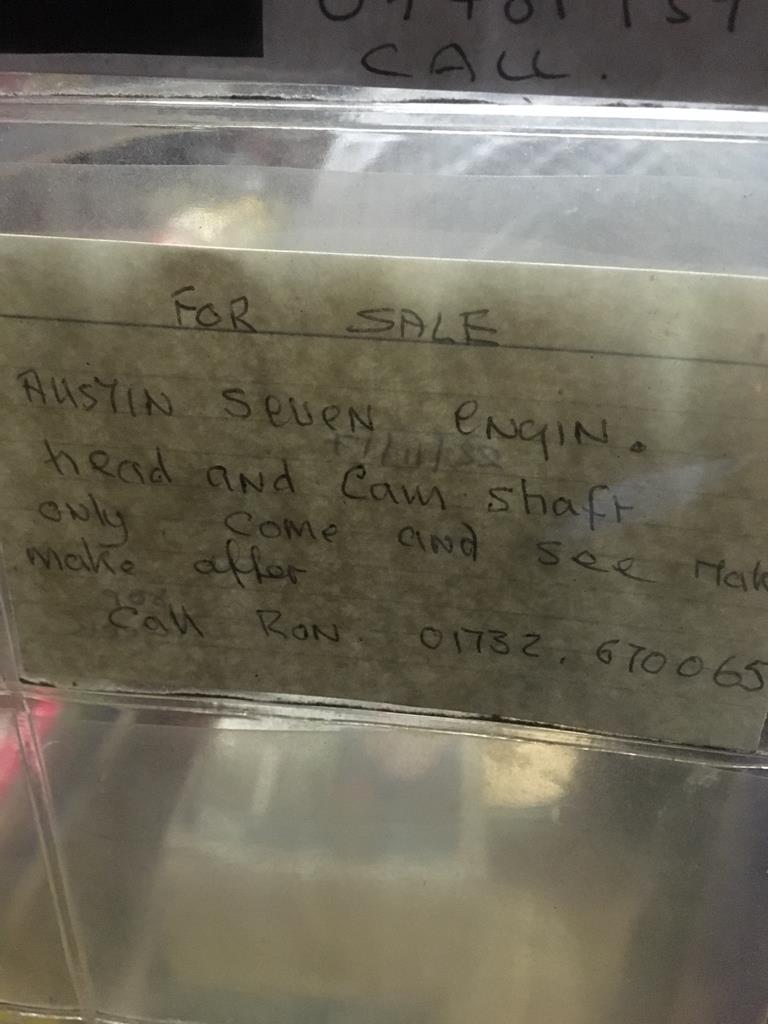 CALL.
FOR SALE
AUSTIN SEVEN ENGIN.
head and Cam shaft
only. COME and see Mak
make affer
Call RON. 01732. 670065